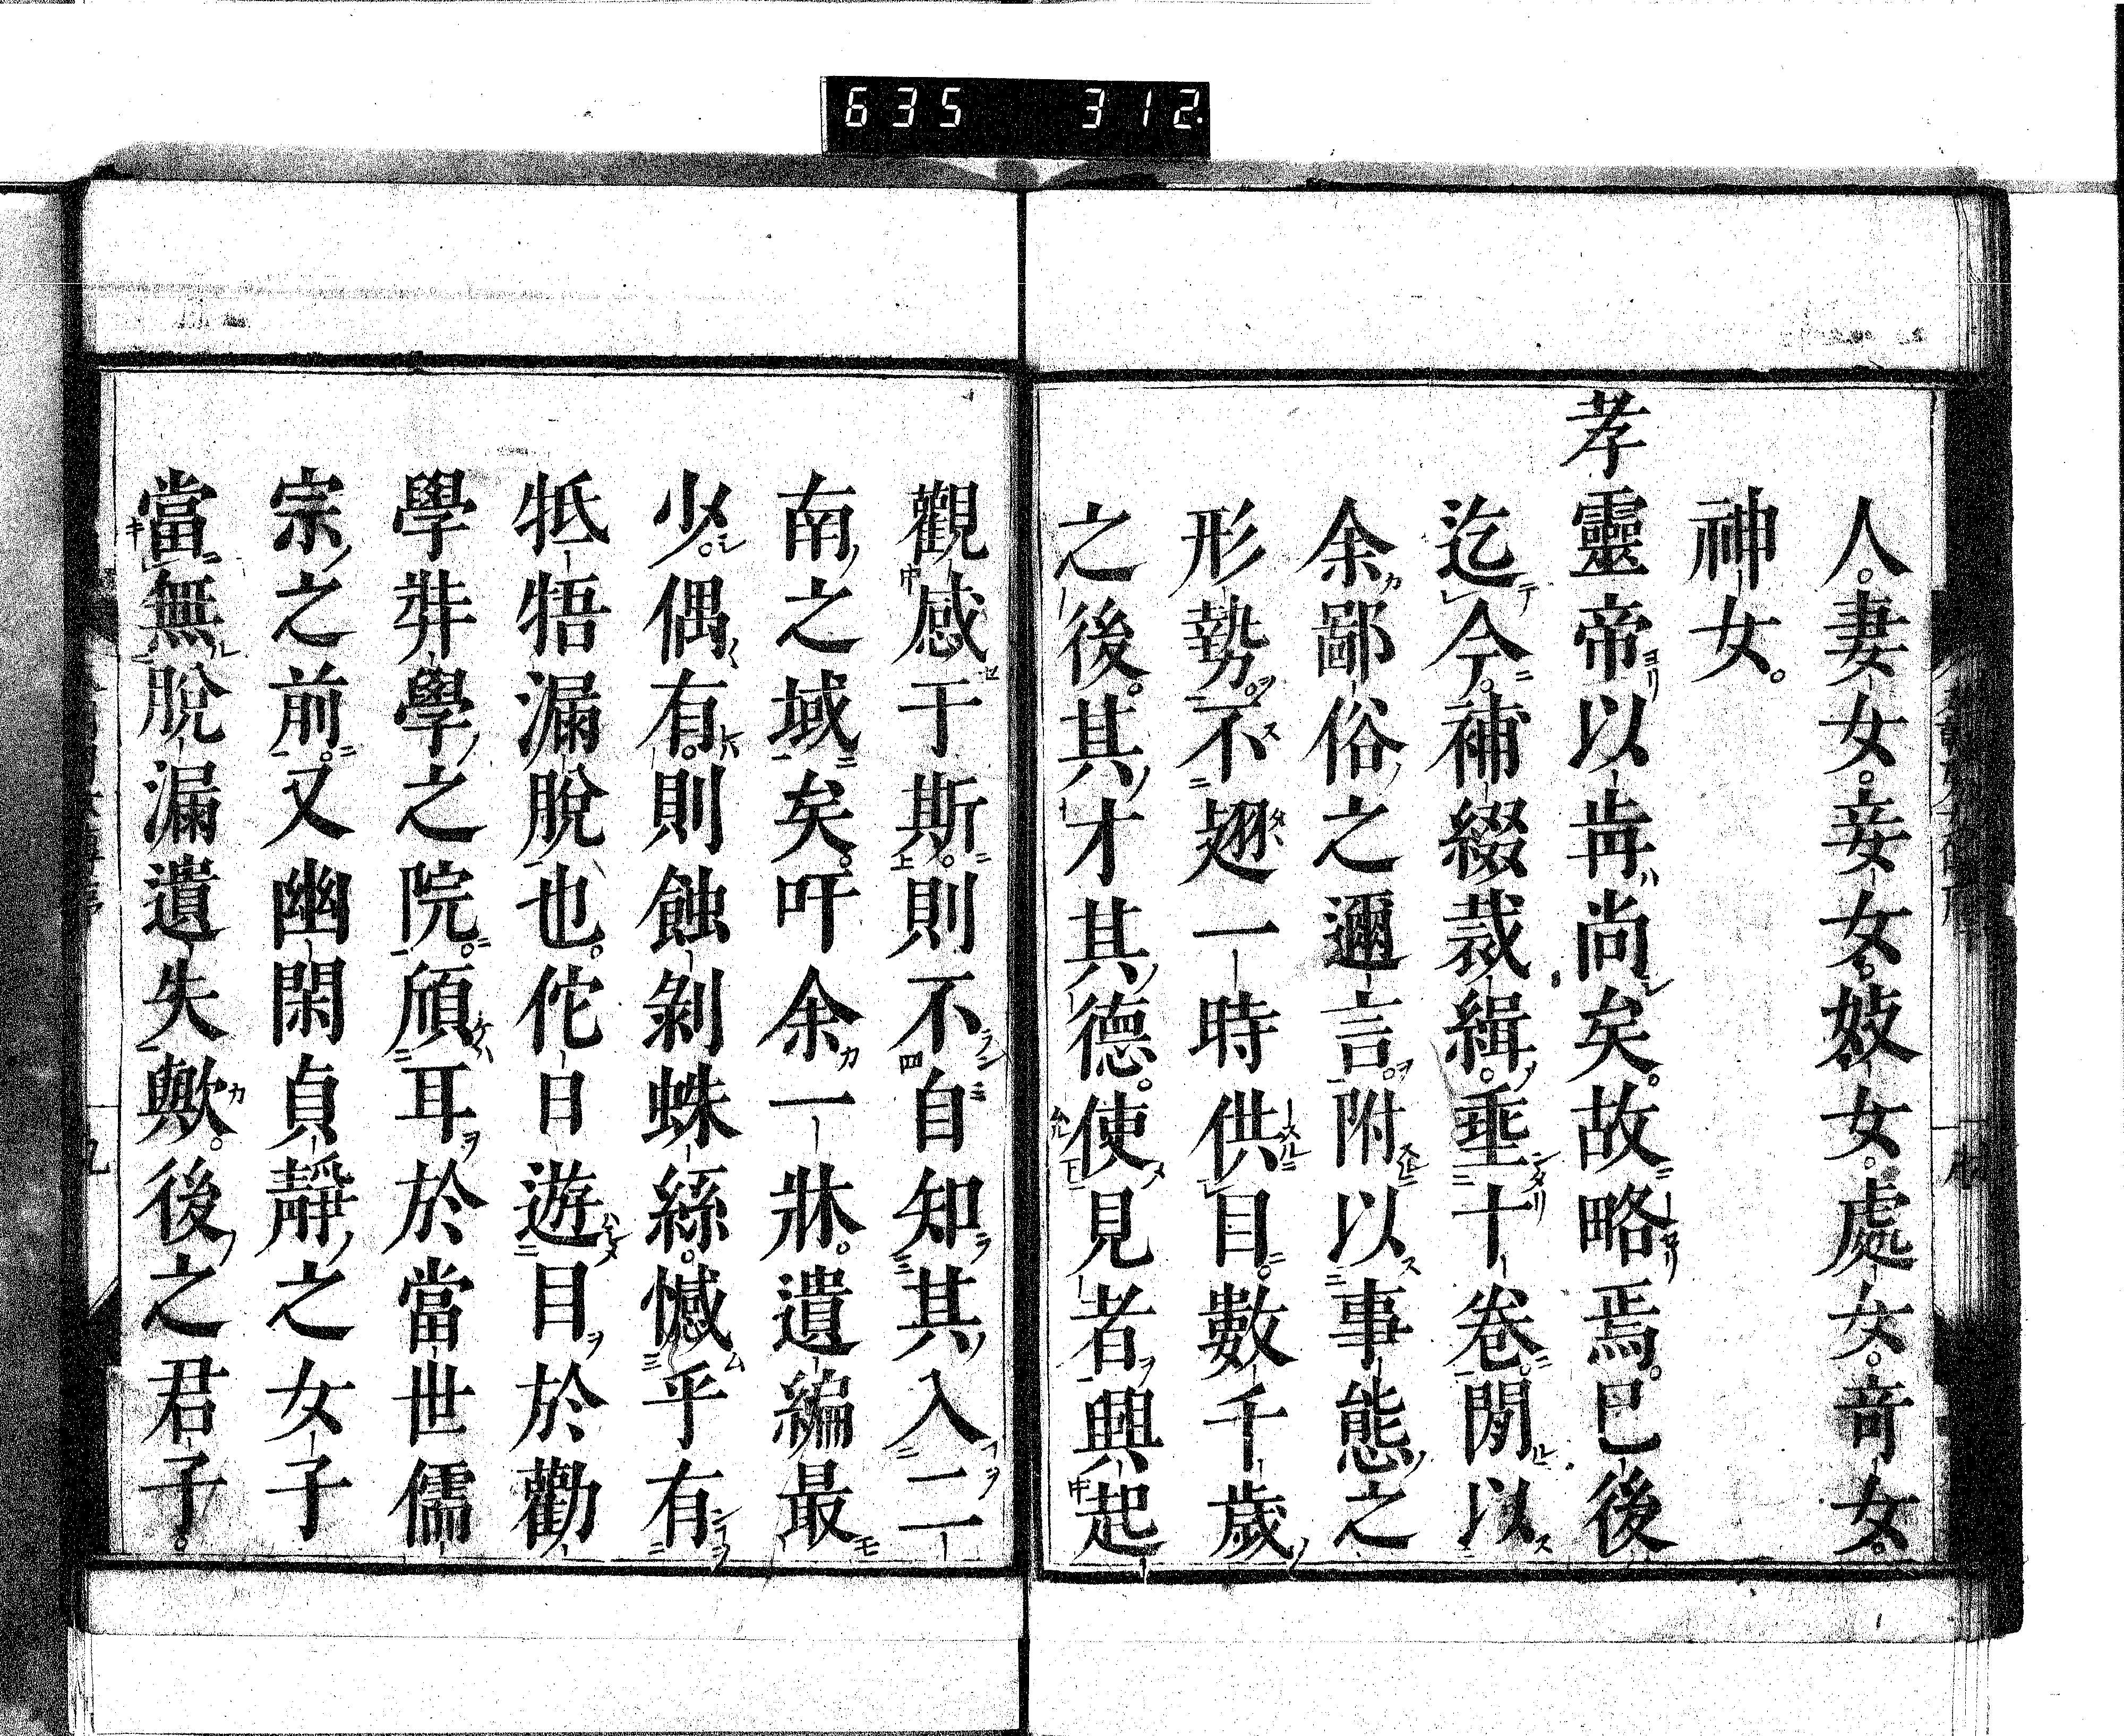 635 312.
人。妻女。妾女。妓女。處女。竒女。
神女。
孝靈帝以歬尚矣。故略焉。已後
迄今。補綴裁緝。垂十卷。閒以
余鄙俗之邇言。附以事態之
形勢。不翅一時供目。數千歲
之後。其才其德。使見者興起
觀感于斯。則不自知其入二
南之域矣。吁余一牀遺編最
少。偶有。則蝕剝蛛絲。憾乎有
牴牾漏脫也。佗日遊目於勸
學弉學之院。傾耳於當世儒
宗之前。又幽閑貞靜之女子
當無脫漏遺失歟。後之君子。